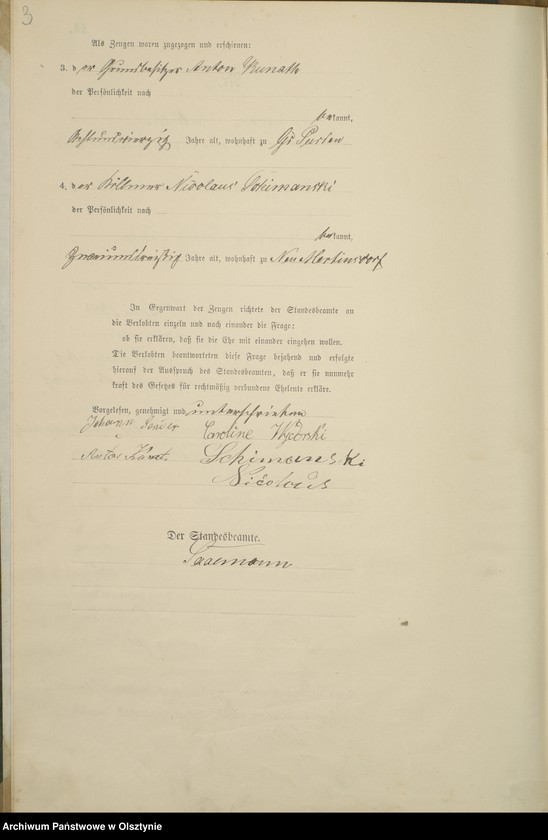 3
Als Zeugen waren zugezogen und erschienen:
3. der Grundbesitzer Anton Kunath
der Persönlichkeit nach
bekannt,
achtundvierzig Jahre alt, wohnhaft zu Gr Purden
4. der Köllmer Nicolaus Schimanski
der Persönlichkeit nach
bekannt,
zweiunddreißig Jahre alt, wohnhaft zu Neu Mertinsdorf
In Gegenwart der Zeugen richtete der Standesbeamte an
die Verlobten einzeln und nach einander die Frage:
ob sie erklären, daß sie die Ehe mit einander eingehen wollen.
Die Verlobten beantworteten diese Frage bejahend und erfolgte
hierauf der Ausspruch des Standesbeamten, daß er sie nunmehr
kraft des Gesetzes für rechtmäßig verbundene Eheleute erkläre.
Vorgelesen, genehmigt und unterschrieben
Johann
Caroline
Anton
Schimanski
Nicolaus
Der Standesbeamte.
Archiwum Państwowe w Olsztynie